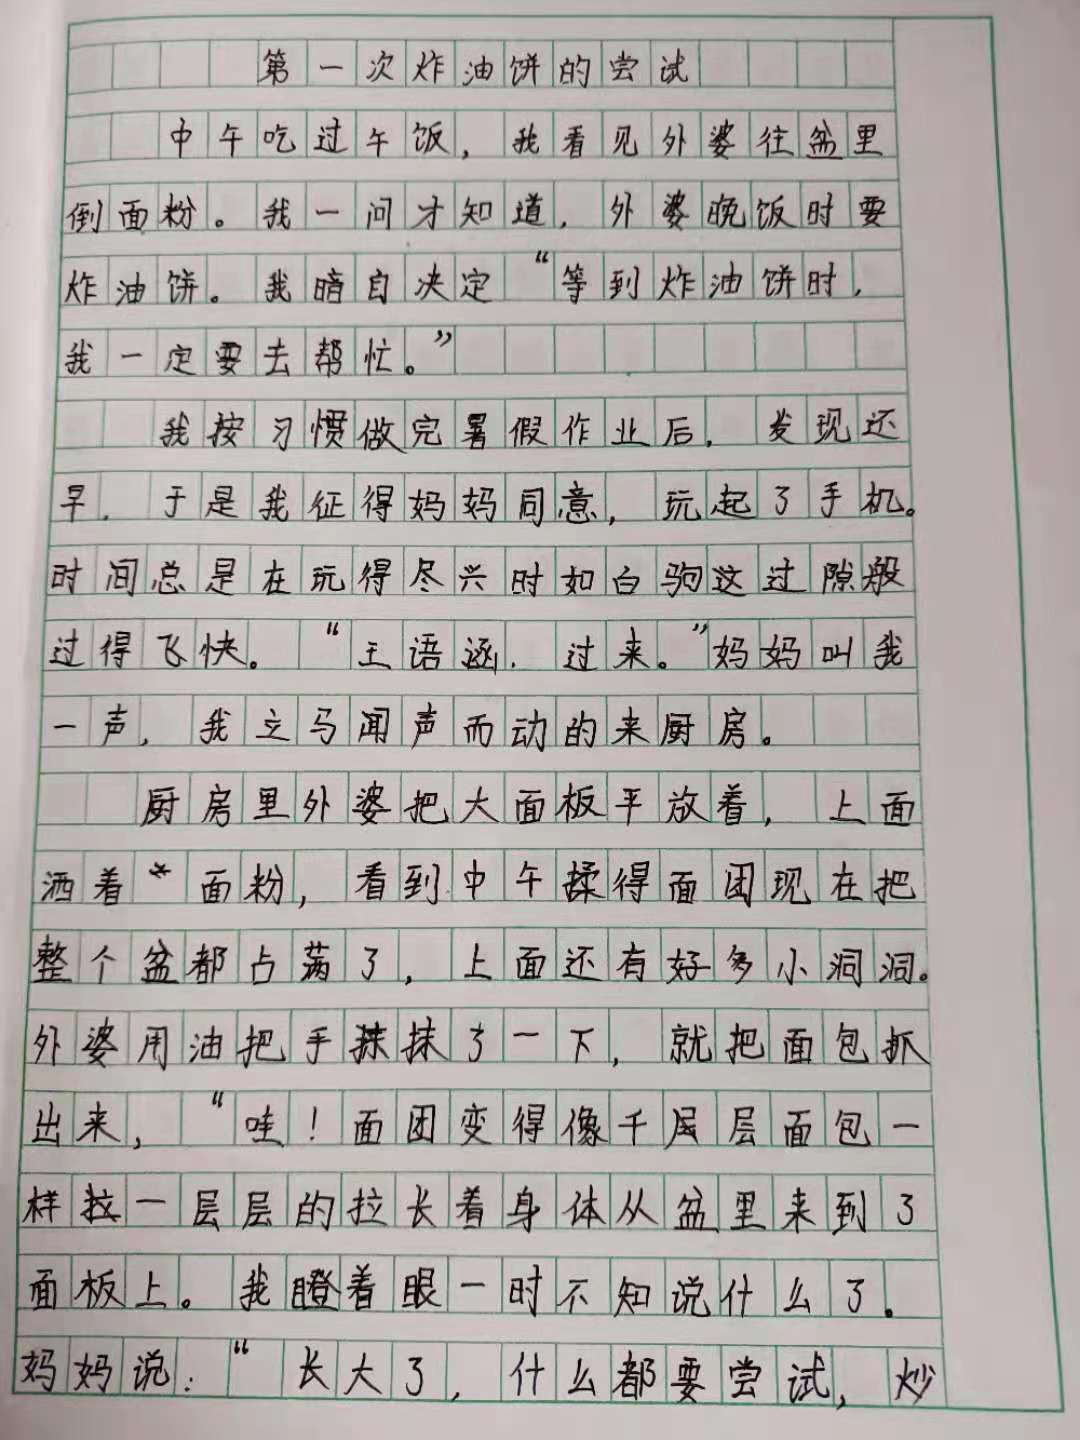 第一次炸油饼的尝试
中午吃过午饭，我看见外婆往盆里
倒面粉。我一问才知道，外婆晚饭时要
炸油饼。我暗自决定“等到炸油饼时，
我一定要去帮忙。”
我按习惯做完暑假作业后，发现还
早，于是我征得妈妈同意，玩起了手机。
时间总是在玩得尽兴时如白驹这过隙般
过得飞快。“王语涵，过来。”妈妈叫我
一声，我立马闻声而动的来厨房。
厨房里外婆把大面板平放着，上面
洒着面粉，看到中午揉得面团现在把
整个盆都占满了，上面还有好多小洞洞。
外婆用油把手抹抹了一下，就把面包抓
出来，“哇！面团变得像千层层面包一
样拉一层层的拉长着身体从盆里来到了
面板上。我瞪着眼一时不知说什么了。
妈妈说：“长大了，什么都要尝试，炒